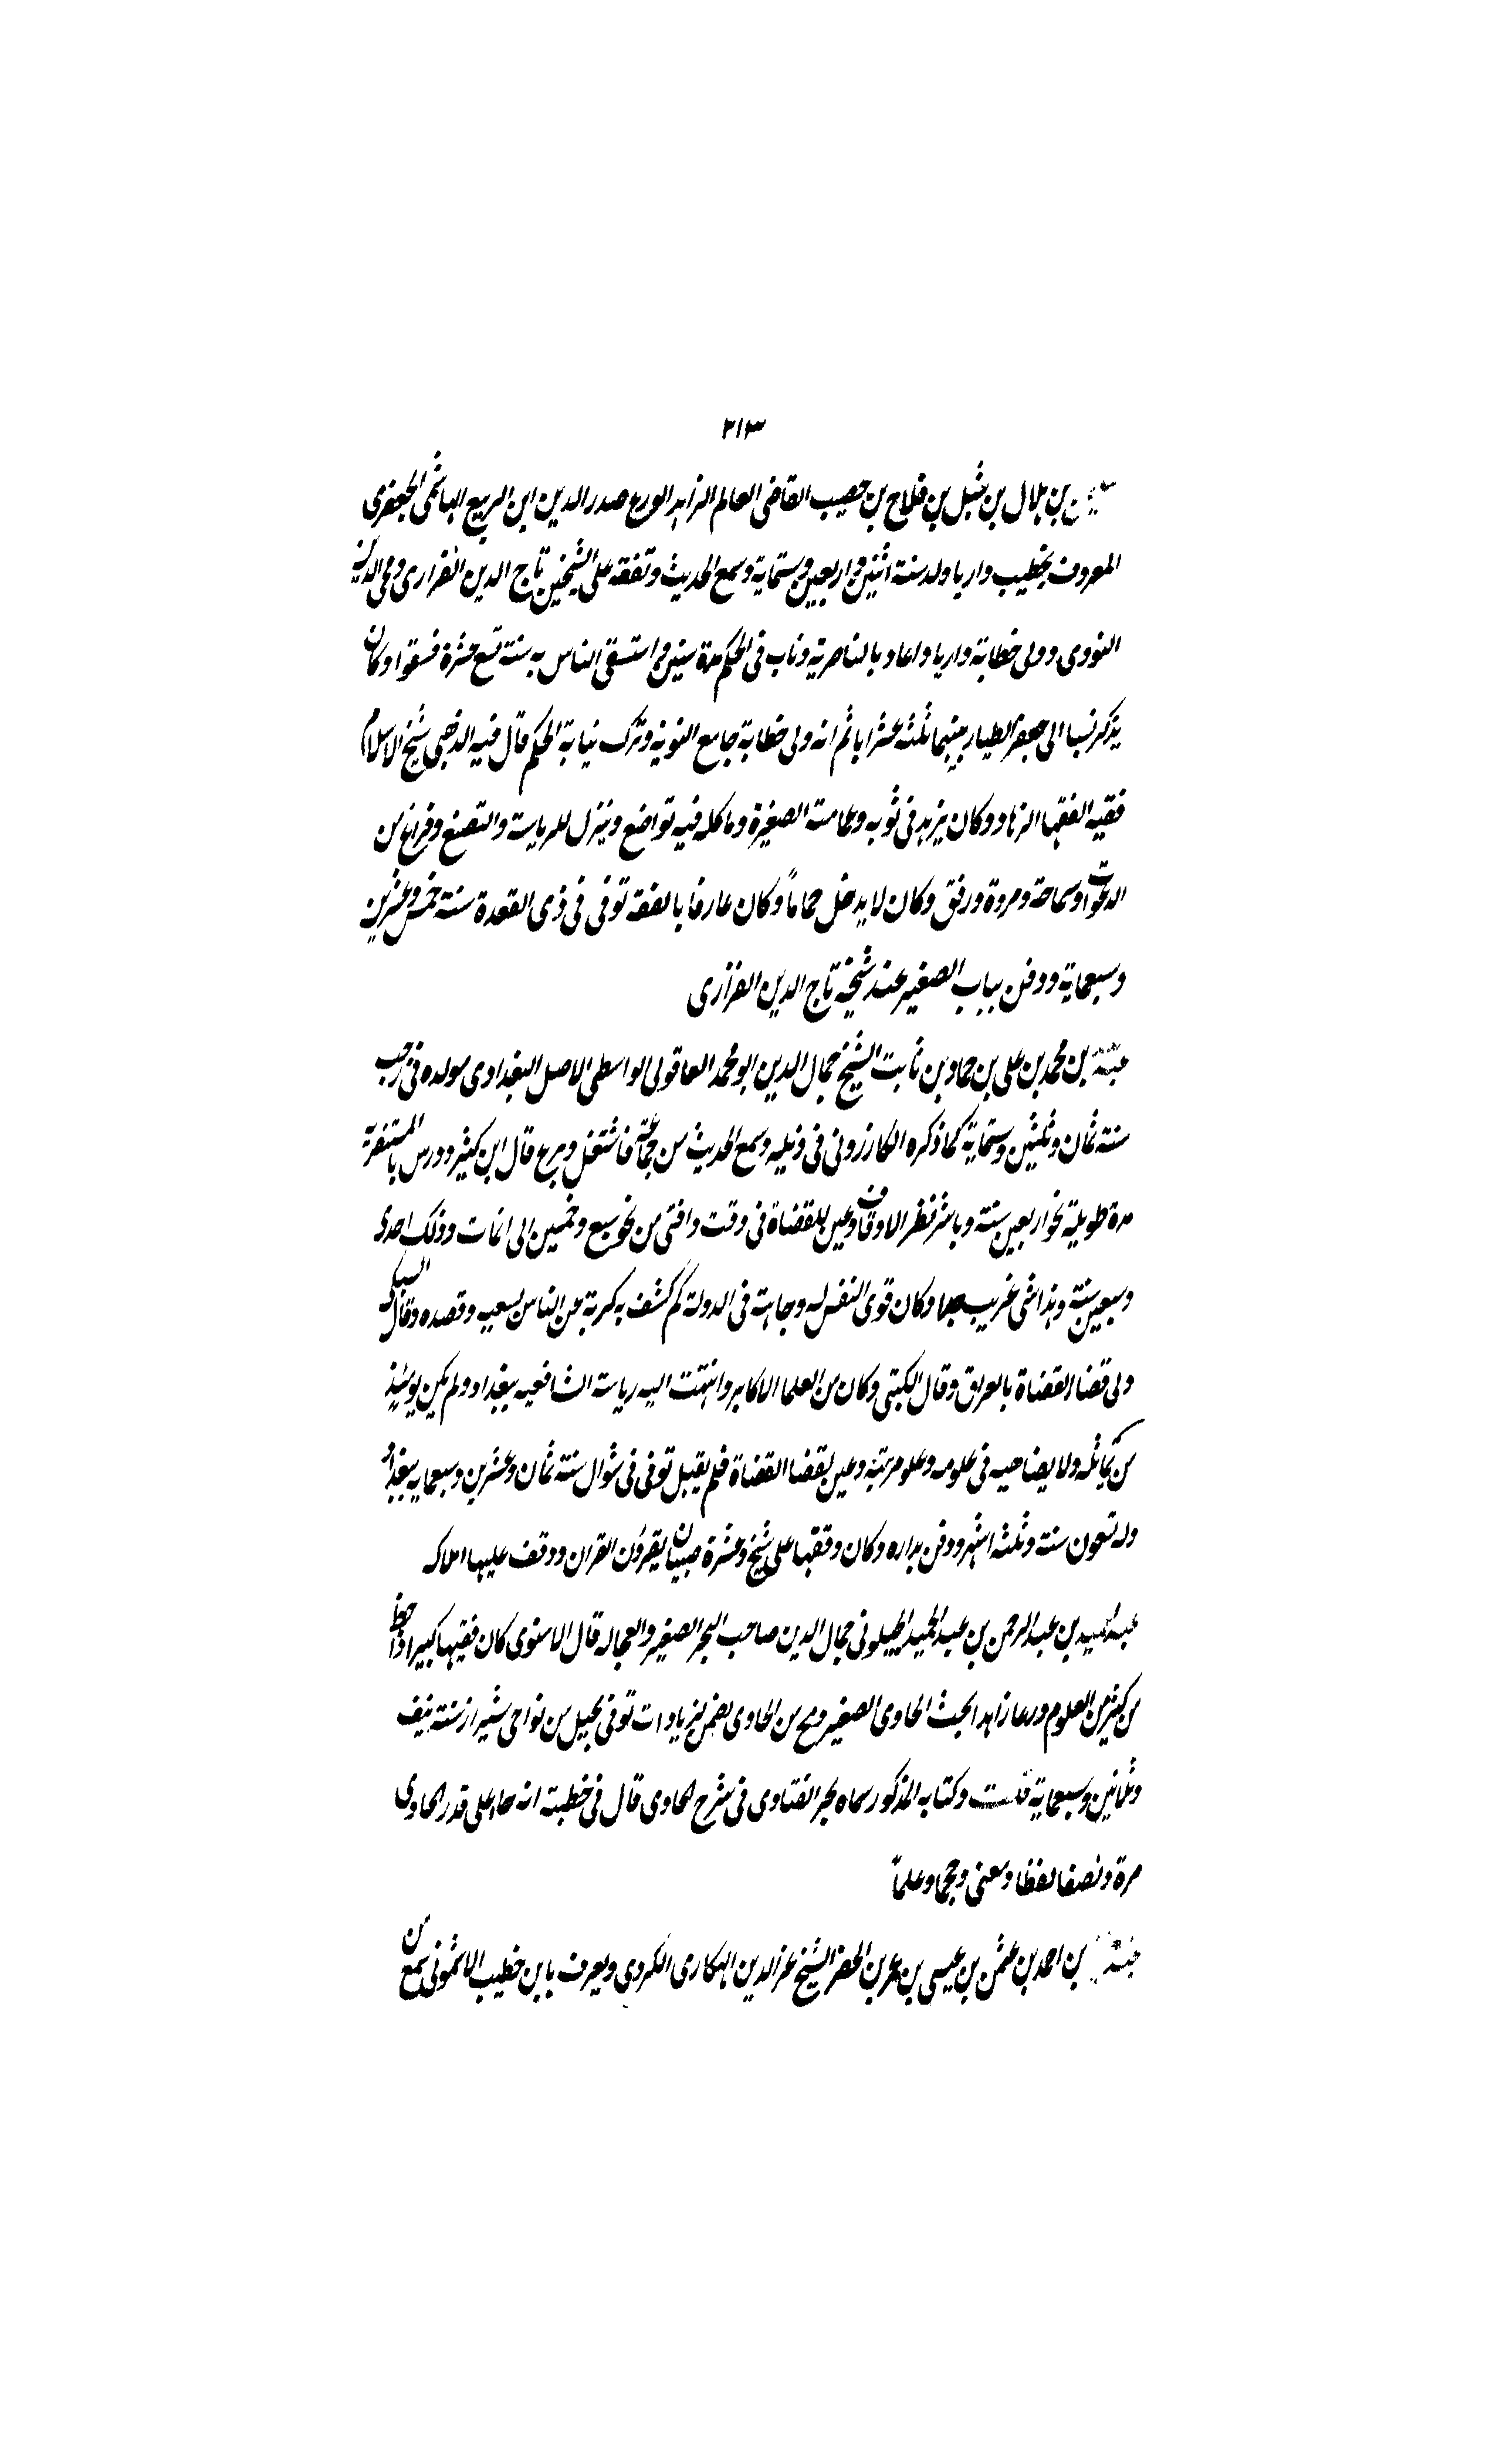 ٢١٣
بن بلال بن شبل بن فلاح بن حصيب القاضى العالم الزاهد الورع صدر الدين ابن الربيع الهاشمى الجعفرى
المعروف بخطيب داريا ولد سنة اثنين واربعين وستماية وسمع الحديث وتفقه على الشيخين تاج الدين الفزارى ومحى الدين
النووى وولى خطابة داريا واعاد بالناصرية وناب فى الحكم مدة سنين واستسقى الناس به سنة تسع عشرة فسقوا وكان
يذكر نسبا الى جعفر الطيار بينهما ثلثة عشر ابا ثم انه ولى خطابة جامع التوبة وترك نيابة الحكم قال فيه الذهبى شيخ الاسلام
فقيه الفقها الزهاد وكان يزهد فى ثوبه وعمامته الصغيرة وماكله فيه تواضع ونزل للرياسة والتصنع وفراغ من
الرعونات وسماحة ومروة ورفق وكان لا يدخل حماماً وكان عارفا بالفقه توفى فى ذى القعدة سنة خمس وعشرين
وسبعماية ودفن بباب الصغير عند شيخه تاج الدين الفزارى
بن محمد بن على بن حماد بن ثابت الشيخ جمال الدين ابو محمد العاقولى الواسطى الاصل البغدادى مولده فى رجب
سنة ثمان وثلثين وستماية كما ذكره الكازرونى فى ذيله وسمع الحديث من جماعة فاشتغل وبرع قال ابن كثير ودرس بالمستنصرية
مدة طويلة نحو اربعين سنة وباشر نظر الاوقاف وعين للقضاة فى وقت وافتى من نحو سبع وخمسين الى ان مات وذلك احدى
وسبعين سنة وهذا شى غريب جدا وكان قوى النفس له وجاهة فى الدولة كم كشف به كربة عن الناس بسعيه وقصده وقال السبكى
ولى قضا القضاة بالعراق وقال الكتبى وكان من العلما الاكابر وانتهت اليه رياسة الشافعيه ببغداد ولم يكن يومئذ
من يماثله ولا يضاهيه فى علومه وعلو مرتبته وعين لقضا القضاة فلم يقبل توفى فى شوال سنة ثمان وعشرين وسبعمايه ببغداد
وله تسعون سنة وثلثة اشهر ودفن بداره وكان وقفها على شيخ وعشرة صبيان يقرؤن القران ووقف عليها املاكه
بن عبد الرحمن بن عبد الحميد الجيلونى جمال الدين صاحب البحر الصغير والعجاله قال الاسنوى كان فقيها كبيرا ذا حظ
من كثير من العلوم ورعا زاهدا بحث الحاوى الصغير ومح من الحاوى بضمن زيادات توفى بجيل من نواحى شيراز سنة نيف
وثمانين وسبعماية قلت وكتابه المذكور سماه بحر الفتاوى فى شرح الحاوى قال فى خطبته انه جاء على قدر الحاوى
مرة ونصفا لفظا ومعنى وحجما وعلماً
بن احمد بن عثمن بن عيسى بن عمر بن الخضر الشيخ عز الدين الهكارى الكردى ويعرف بابن خطيب الاشمونى سمع من